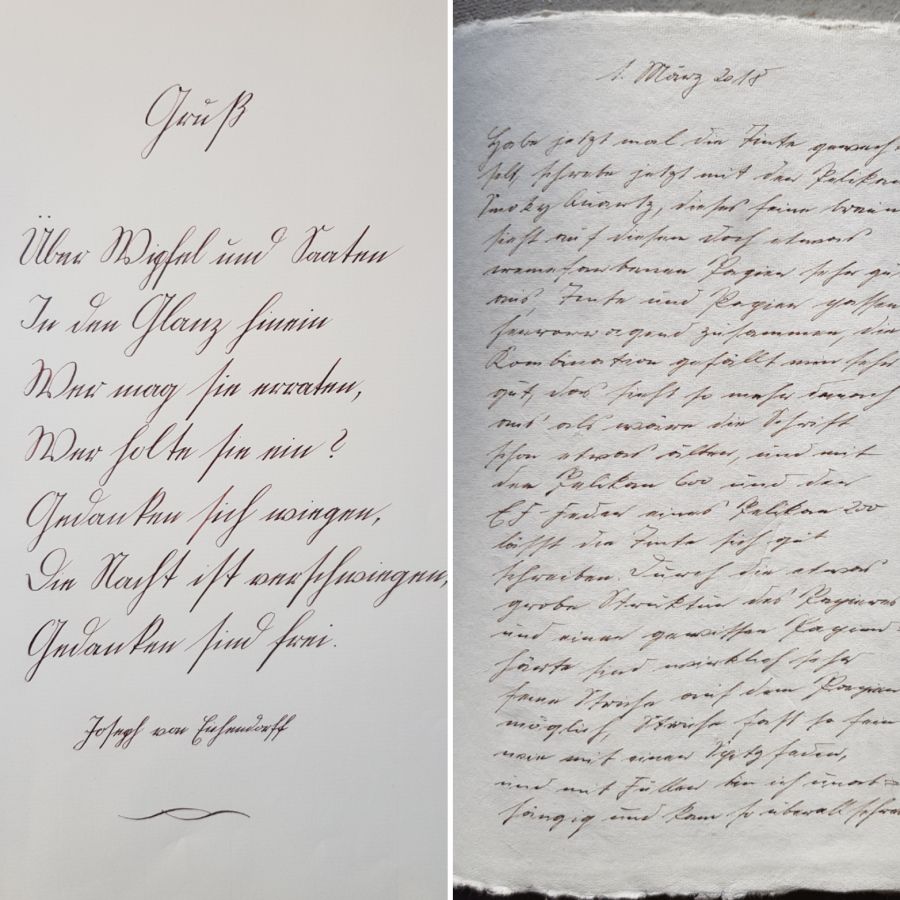 Gruß
Über Wipfel und Saaten
In den Glanz hinein
Wer mag sie erraten,
Wer holte sie ein?
Gedanken sich wiegen,
Die Nacht ist verschwiegen,
Gedanken sind frei.
Joseph von Eichendorff
1. März 2018
Habe jetzt mal die Tinte gewech-
selt, schreibe jetzt mit der Pelikan
Smoky Quartz, dieses feine braun
sieht auf diesem doch etwas
Papier sehr gut
aus Tinte und Papier passen
hervorragend zusammen, die
Kombination gefällt mir sehr
gut, das sieht so mehr danach
aus als wäre die Schrift
schon etwas älter, und mit
dem Pelikan 600 und der
EF Feder eines Pelikan 200
lässt die Tinte sich gut
schreiben. Durch die etwas
grobe Struktur des Papieres
und einer gewissen Papier-
härte sind wirklich sehr
feine Striche auf dem Papier
möglich, Striche fast so fein
wie mit einer Spitzfeder,
und mit Füller bin ich unab-
hängig und kann so überall